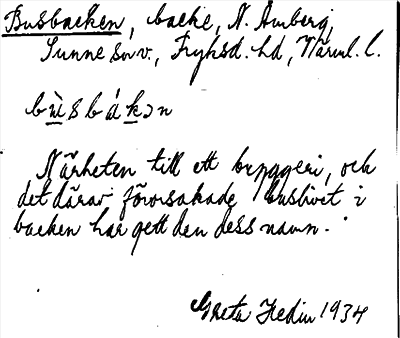 Busbacken, backe, N. Amberg,
Sunne sn v., Fryksd. hd, Värml. l.
bùsbákən
Närheten till ett bryggeri, och
det därav förorsakade buslivet i
backen har gett den dess namn.
Greta Hedin 1934